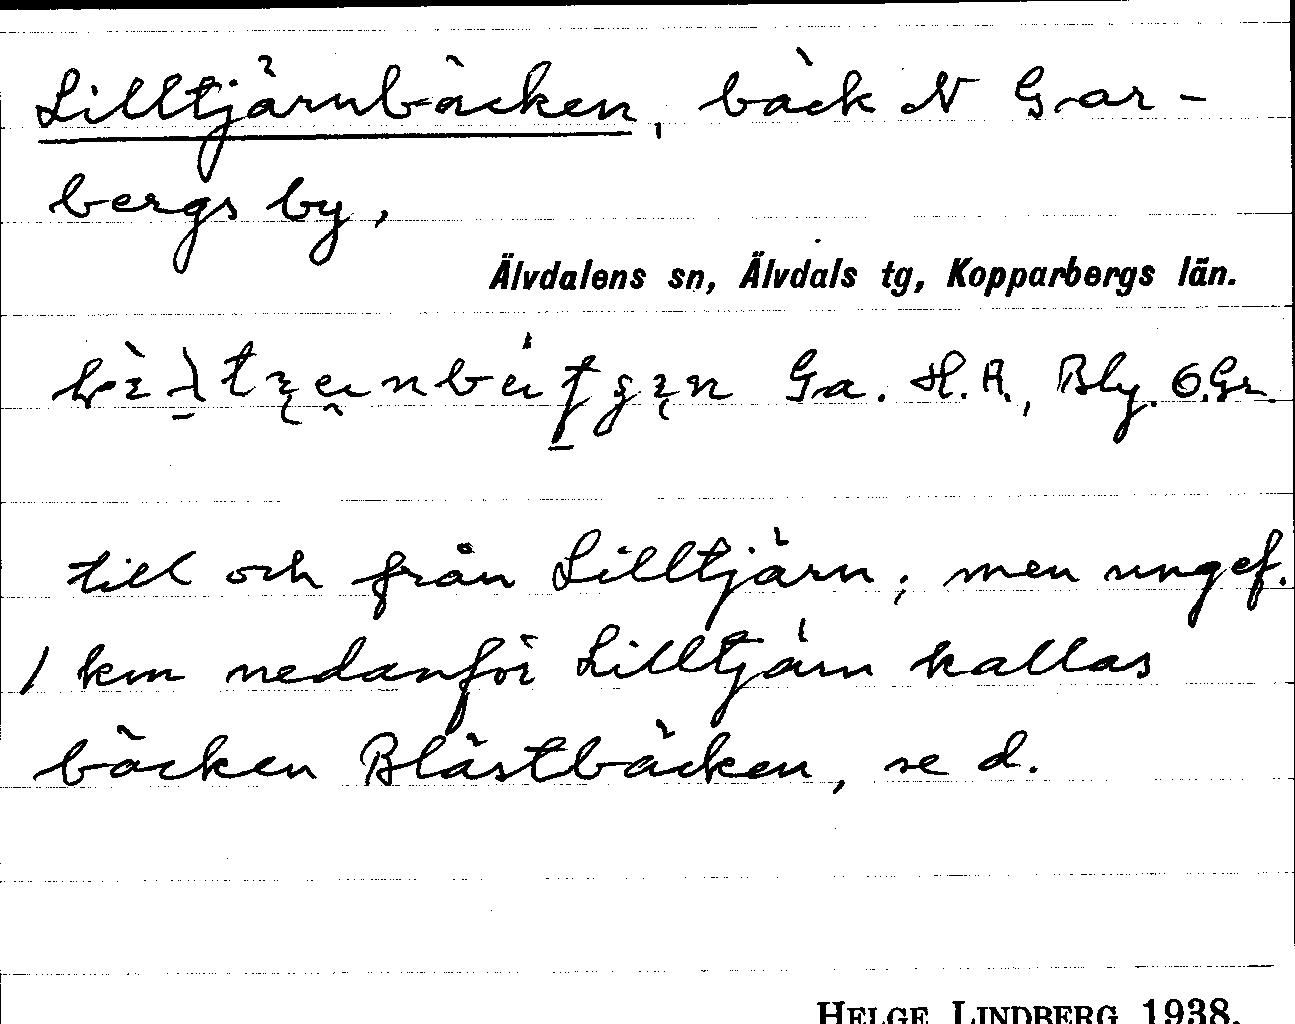 Lilltjärnbäcken, bäck N Gar-
bergs by,
Älvdalens sn, Älvdals tg, Kopparbergs län.
Ga. H.A., Bly. O.Gr.
till och från Lilltjärn; men ungef.
1 km nedanför Lilltjärn kallas
bäcken Blästbäcken, se d.
HELGE LINDBERG 1938.